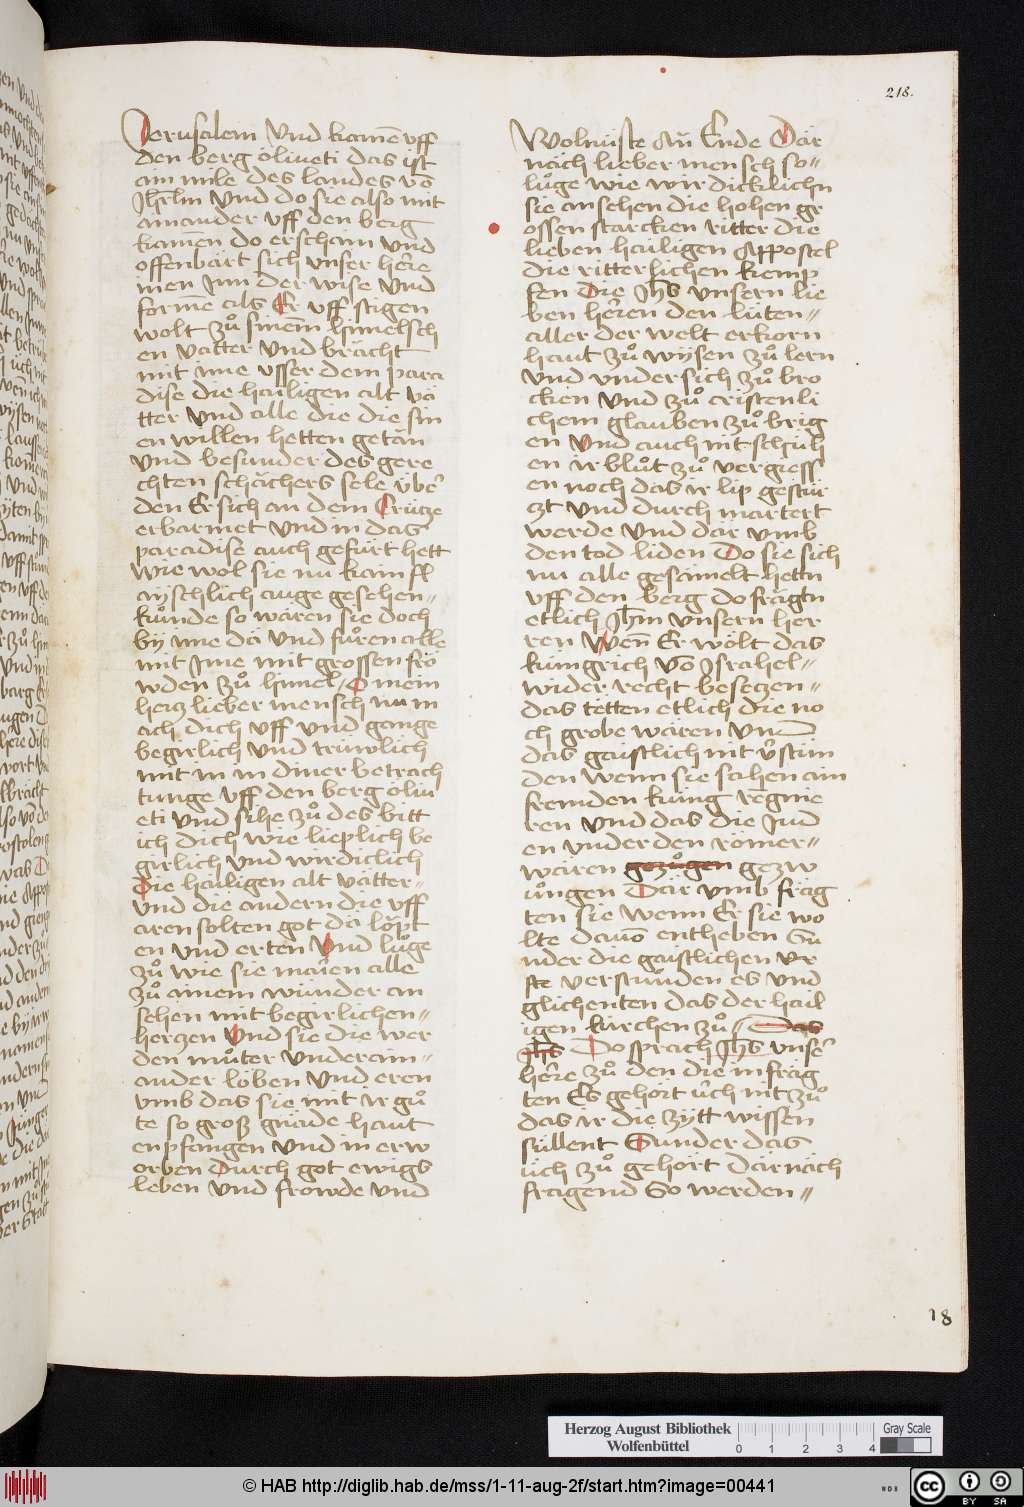 218.
Jerusalem Vnd kamē vff
den berg öliueti das ist
ain mile des landes vō
Jhrlm Vnd do sie also mit
ainander vff den berg
kamen do erschain vnd
offenbart sich vnser here
inen Jnn der wise Vnd
formē als Er vff stigen
wolt zů sinem himelsch
en vatter Vnd bracht
mit ime vsser dem para
dise die hailigen alt vä
tter Vnd alle die die sin
en willen hetten getän
Vnd besunder des gere
chten schächers sele übe'
den Er sich an dem Crütze
erbarmet Vnd in das
paradise auch gefürt hett
Wie wol sie nu kain fl
ayschlich auge gesehen=
kunde so wären sie doch
by ime da Vnd fůren alle
mit Jme mit grossen frö
wden zů himel O mein
herz lieber mensch nu m
ach dich vff vnd gange
begirlich Vnd trüwlich
mit in in diner betrach
tunge vff den berg öliu
eti Vnd sihe zů des bitt
ich dich wie lieplich be
girlich Vnd wirdiclich
Die hailigen alt vätter=
Vnd die andern die vff
aren solten got da lopt
en vnd erten Vnd lůge
zů wie sie maren alle
zů ainem wunder an
sehen mit begirlichen=
herczen Vnd sie die wer
den můter vnderain=
ander loben Vnd eren
vmb das sie mit ir gů
te so groß gnade haut
enpfangen Vnd in erw
orben durch got ewigs
leben vnd frowde vnd
Wolnüste An Ende Där
näch lieber mensch so=
lůge wie wir dicklichn
sie ansehen die hohen gr
ossen starcken ritter die
lieben hailigen Appostel
die ritterlichen kemp
fen Die Jhs vnsern lie
ben heren den lüten=
aller der welt erkorn
haut zů wysen zů lern
vnd vndersich zů bro
cken Vnd zů cristenli
chem glauben zů brig
en Vnd auch nit schüh
en ir blůt zů vergiess
en noch das ir lip gestür
zt Vnd durch martert
werde Vnd där vmb
den tod liden Do sie sich
nu alle gesamelt hettn
vff den berg do frägtn
etlich Jhm vnsern her
ren Wen Er wölt das
küngrich vō Jsrahel=
wider recht besetzen=
das tetten etlich die no
ch grobe wären Vnd
das gaistlich nit v'stün
den wenn sie sahen ain
fremden küng regnie
ren Vnd das die Jud
en vnder den römer=
wären gezůgen gezw
ůngen Där vmb fräg
ten sie wenn Er sie wo
lte davō entheben Su
nder die gaistlichen vr
ste verstunden es Vnd
glichenten das der hail
igen kirchen zů= Das
Jhs Do sprach Jhs vnse'
here zů den die in fräg
ten Es gehört üch nit zů
das ir die zytt wissen
süllent Sunder das
üch zů gehört Därnäch
fragend So werden=
18
Herzog August Bibliothek
Wolfenbüttel
0 1 2 3 4
Gray Scale
© HAB http://diglib.hab.de/mss/1-11-aug-2f/start.htm?image=00441
cc BY SA